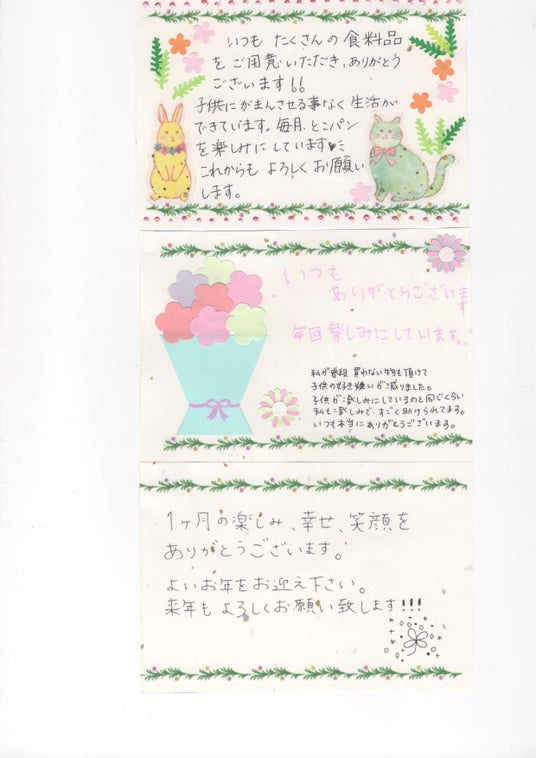 いつも たくさんの 食料品
をご用意いただき、ありがとう
ございます!!
子供にがまんさせる事なく 生活が
できています。毎月、とこパン
を楽しみにしています♥
これからも よろしく お願い
します。
いつも
ありがとうございます
毎回楽しみにしています。
私が普段 買わない物も頂けて
子供の好き嫌いが減りました。
子供が楽しみにしているのと同じくらい
私も楽しみで、すごく助けられてます。
いつも本当にありがとうございます。
1ヶ月の楽しみ、幸せ、笑顔を
ありがとうございます。
よいお年をお迎え下さい。
来年もよろしくお願い致します!!!